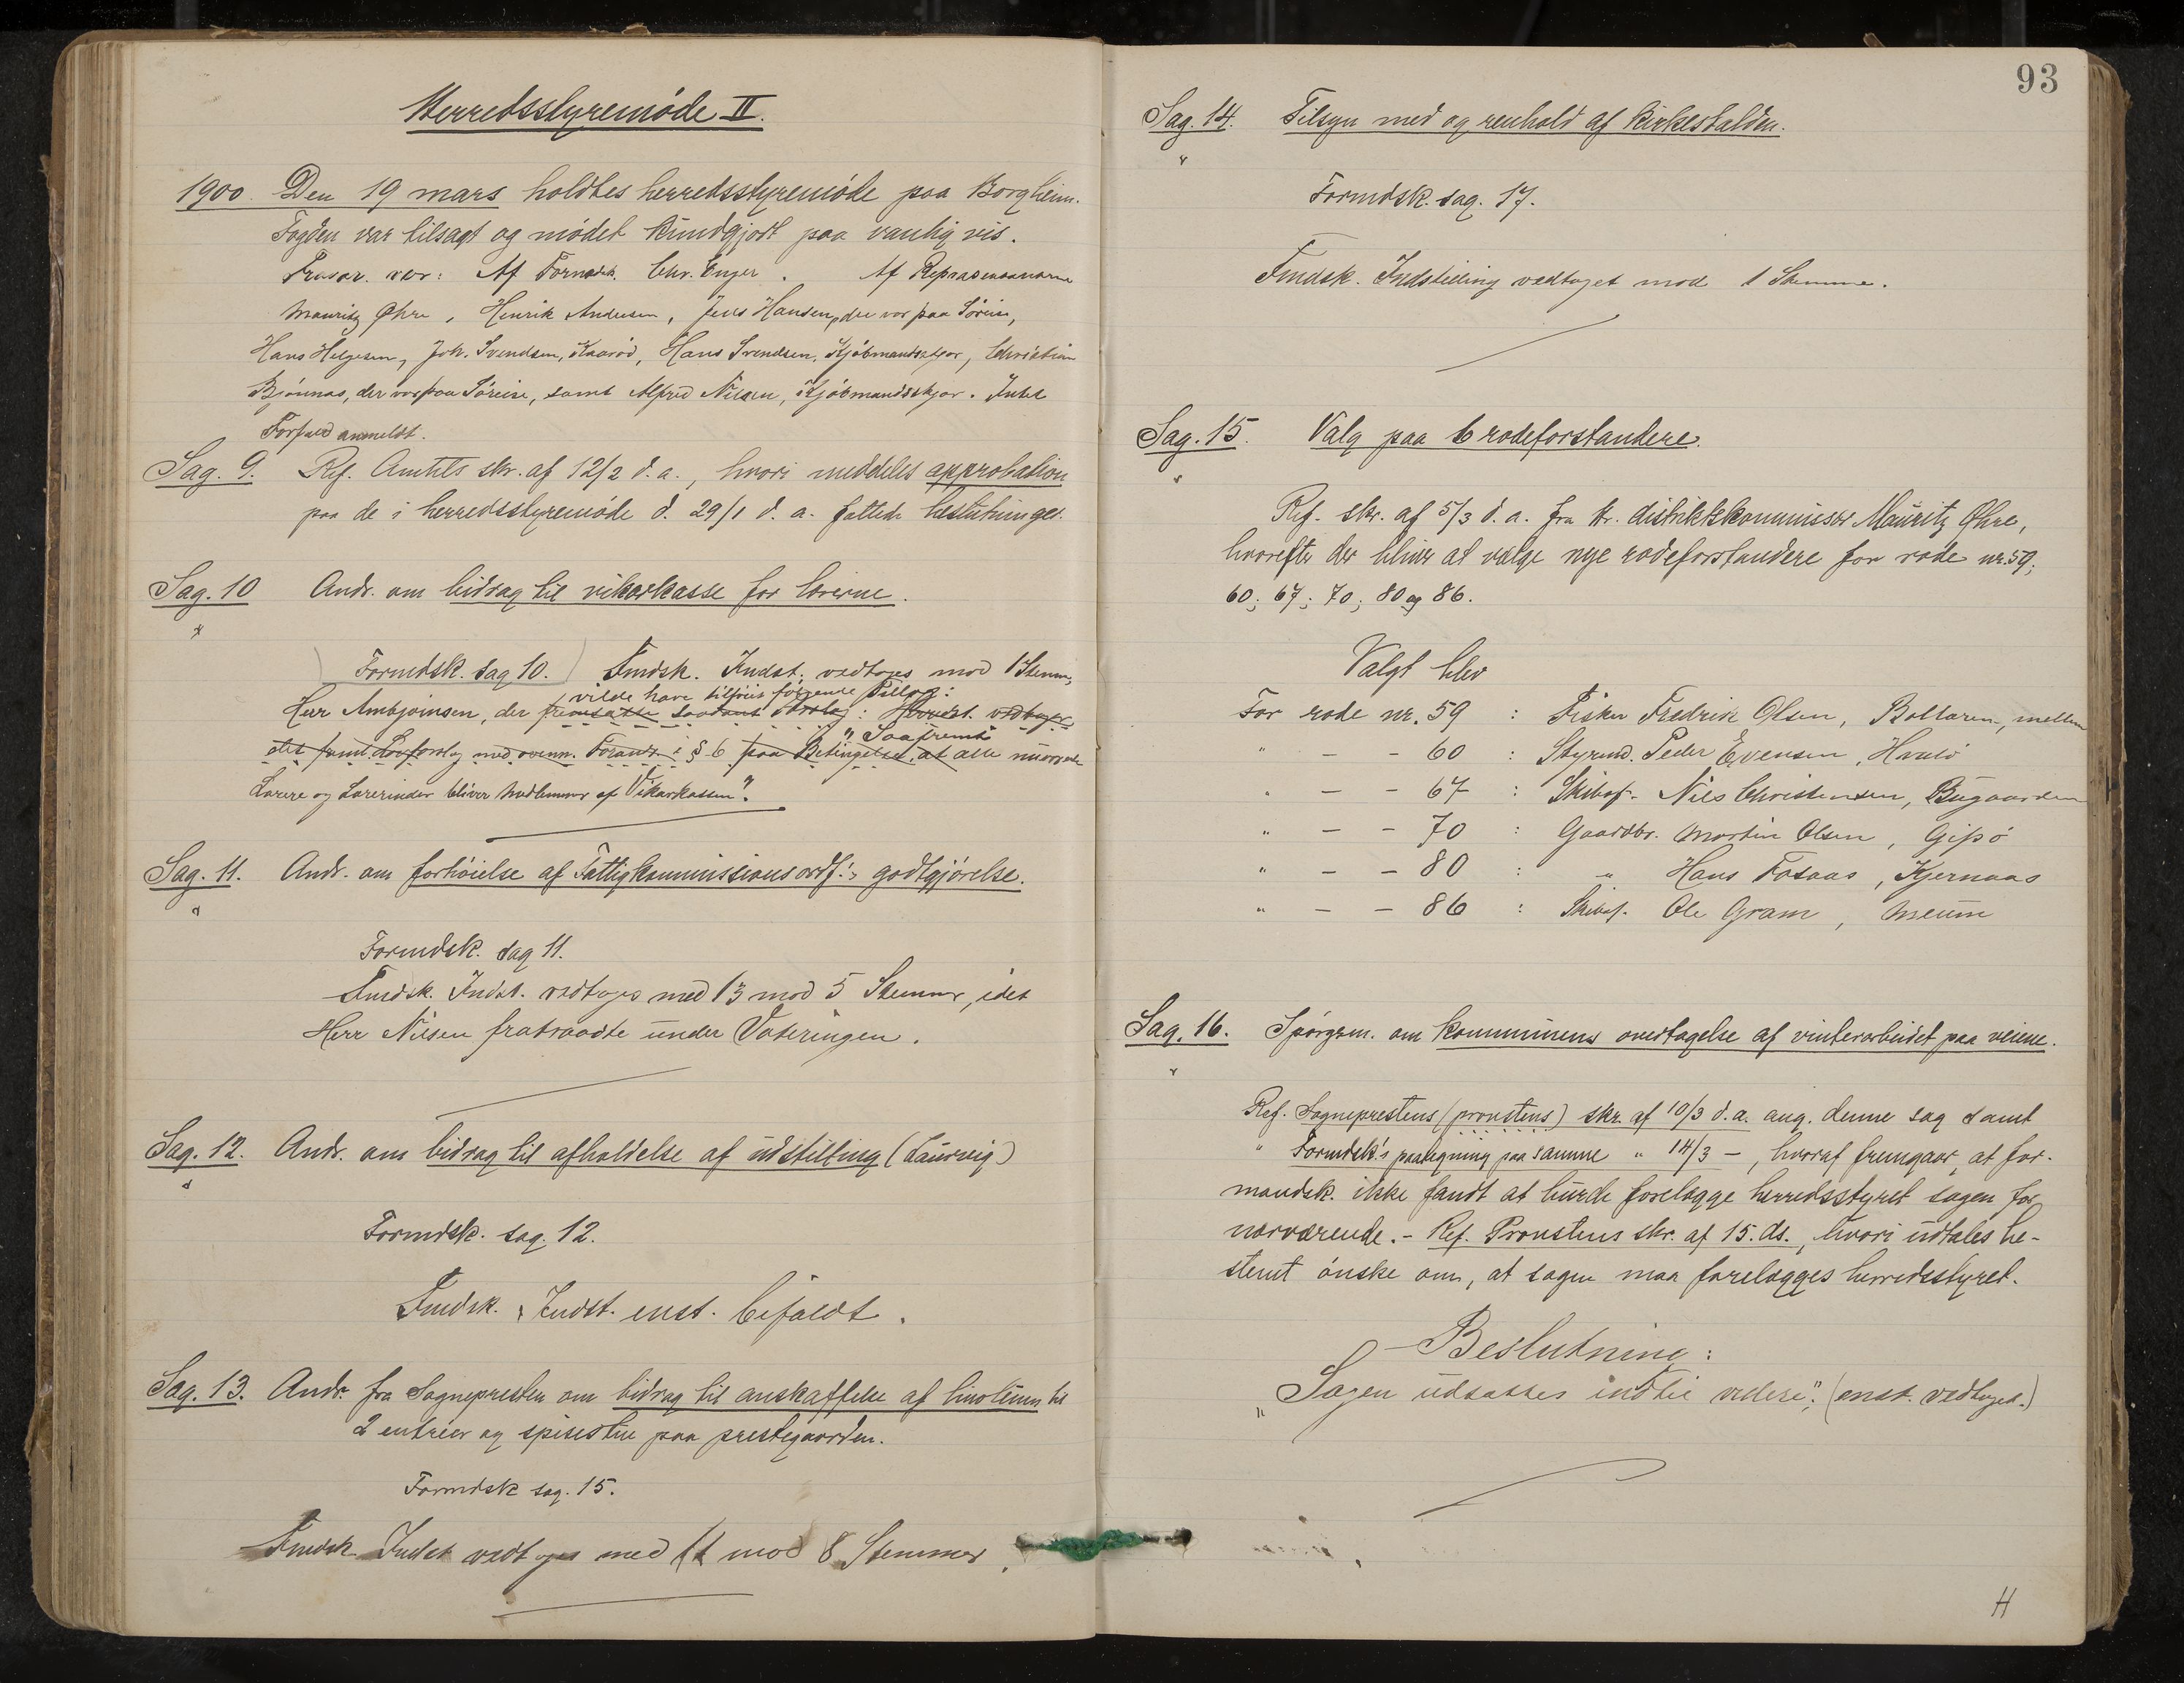 Herredsstyremöde II.
1900. Den 19 mars holdtes herredsstyremöde paa Borgheim.
Fogden var tilsagt og mödet kundgjort paa vanlig vis.
Fravær. var: Af Formdsk. Chr. Enger. Af Repræsentanterne
Mauritz Øhre, Henrik Andersen, Jens Hansen, der var paa Söreise,
Hans Helgesen, Joh. Svendsen, Kaaröd, Hans Svendsen, Kjöbmandskjær, Christian
Bjönnæs, der var paa Söreise, samt Alfred Nilsen, Kjöbmandskjær. Intet
Forfald anmeldt.
Sag. 9. Ref. Amtets skr. af 12/2 d. a., hvori meddeles approbation
paa de i herredsstyremöde d. 29/1 d. a. fattede beslutninger.
Sag. 10 Andr. om bidrag til vikarkasse for lærerne.
Formdsk. sag 10. Fmdsk. Indst. vedtoges mod 1 Stemme,
vilde have tilföiet fölgende Tillæg:
Herr Ambjörnsen, der fremsatte saadant Forslag: Herredst. vedtager
"Saafremt
det fremt. Lovforslag med ovenn. Forandr. i § 6 paa Betingelse, at alle nuværende
Lærere og Lærerinder bliver Medlemmer af Vikarkassen".
Sag. 11. Andr. om forhöielse af Fattigkommissionsordf:s godtgjörelse.
Formdsk. sag 11.
Fmdsk. Indst. vedtoges med 13 mod 5 Stemmer, idet
Herr Nilsen fratraadte under Voteringen.
Sag. 12. Andr. om bidrag til afholdelse af udstilling (Laurvig)
Formdsk. sag. 12.
Fmdsk. Indst. enst. bifaldt.
Sag. 13. Andr. fra Sognepresten om bidrag til anskaffelse af linoleum til
2 entreer og spisestue paa prestegaarden.
Formdsk sag. 15.
Fmdsk Indst vedtoges med 11 mod 8 Stemmer.
93
Sag. 14. Tilsyn med og renhold af kirkestalden.
Formdsk. sag. 17.
Fmdsk. Indstilling vedtaget mod 1 Stemme.
Sag. 15. Valg paa 6 rodeforstandere.
Ref. skr. af 5/3 d. a. fra hr. distriktskommissær Mauritz Øhre,
hvorefter der bliver at vælge nye rodeforstandere for rode nr. 59;
60; 67; 70; 80 og 86.
Valgt blev
For rode nr. 59 : Fisker Fredrik Olsen, Bolæren, mellem
" - - 60 : Styrmd. Peder Evensen, Hvalö
" - - 67 : Skibsf. Nils Christensen, Bugaarden
" - - 70 : Gaardbr. Martin Olsen, Gipö
" - - 80 : " Hans Fosaas, Kjernaas
" - - 86 : Skibsf. Ole Gram, Meum
Sag. 16. Spörgsm. om kommunens overtagelse af vinterarbeidet paa veiene.
Ref. Sogneprestens (provstens) skr. af 10/3 d. a. ang. denne sag samt
" Formdsk's paategning paa samme " 14/3 -, hvoraf fremgaar, at for-
mandsk. ikke fandt at burde forelægge herredsstyret sagen for
nærværende. - Ref. Provstens skr. af 15. ds., hvori udtales be-
stemt önske om, at sagen maa forelægges herredsstyret.
Beslutning:
"Sagen udsættes indtil videre". (enst. vedtaget.)
H